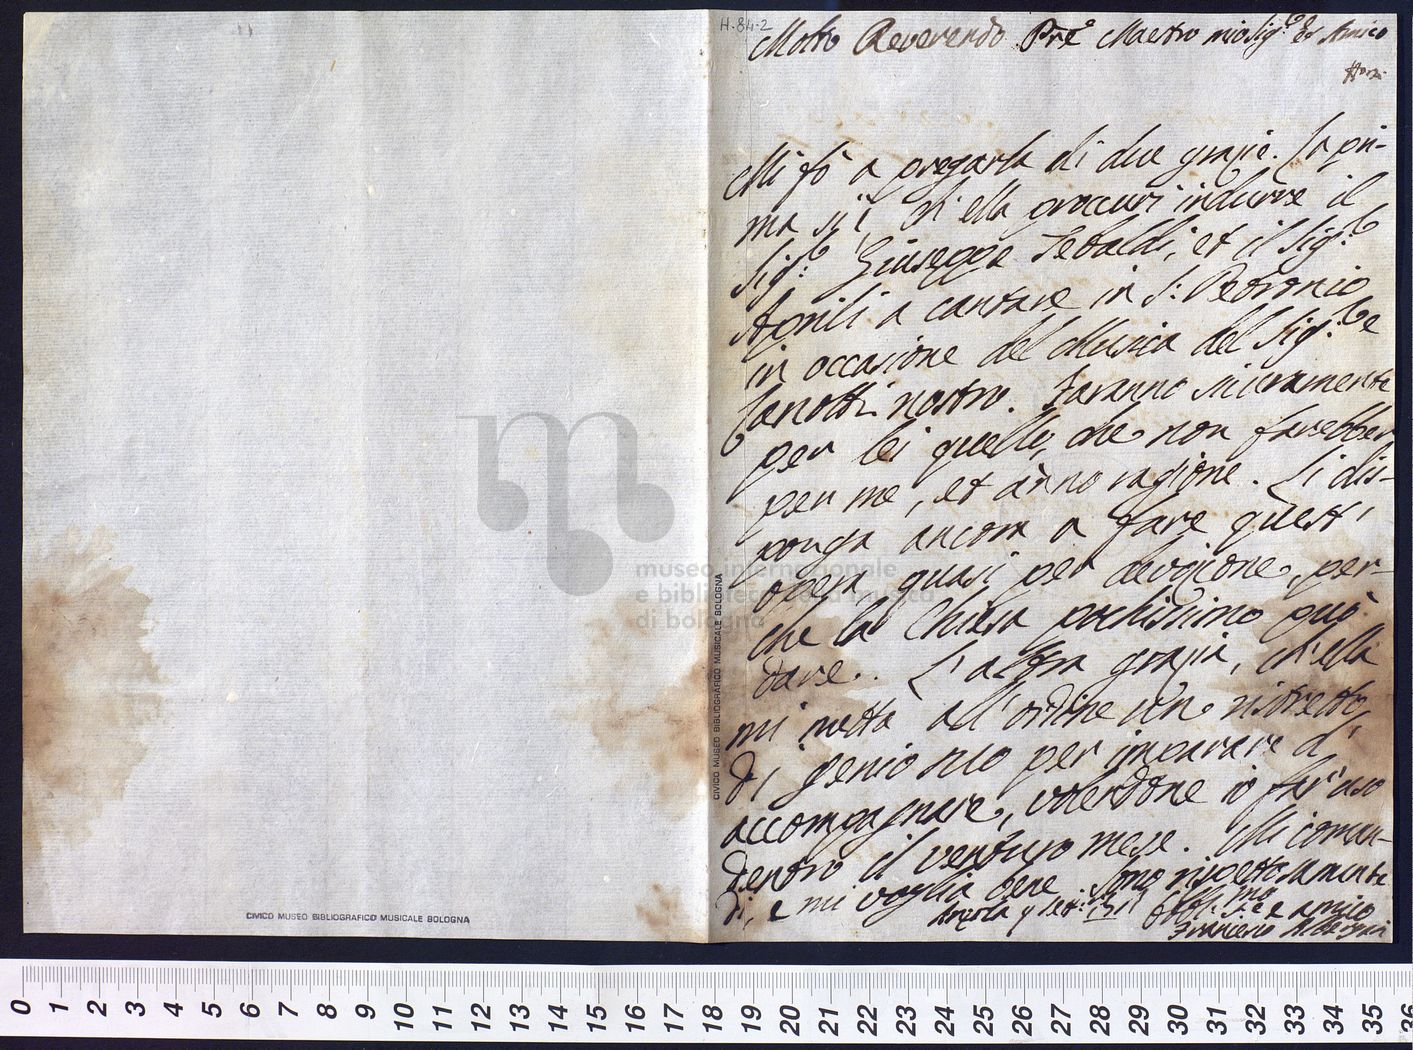 H.84.2
Molto Reverendo Pre Maestro mio Sigre. Et Amico
Mi fò a pregarla di due grazie. La pri-
ma si è, ch'ella proccuri indurre il
Sigre. Giuseppe Tebaldi, et il Sigre.
Aprili a cantare in S. Petronio
in occasione del Musica del Sigre.
Zanotti nostro. Faranno sicuramente
per lei quello, che non farebber
per me, et ànno ragione. Li dis-
ponga ancora a fare quest'
opera quasi per divozione, per-
che la Chiesa pochissimo può
dare. L'altra grazia, ch'ella
mi metta all'ordine un ristretto
di genio suo per imparare d'
accompagnare, volendone io far uso
dentro il venturo mese. Mi coman-
di, e mi voglia bene. Sono rispettosamente
9 Sett.
e amico
Francesco
CIVICO MUSEO BIBLIOGRAFICO MUSICALE BOLOGNA
CIVICO MUSEO BIBLIOGRAFICO MUSICALE BOLOGNA
museo internazionale
e biblioteca della musica
di bologna
0 1 2 3 4 5 6 7 8 9 10 11 12 13 14 15 16 17 18 19 20 21 22 23 24 25 26 27 28 29 30 31 32 33 34 35 36